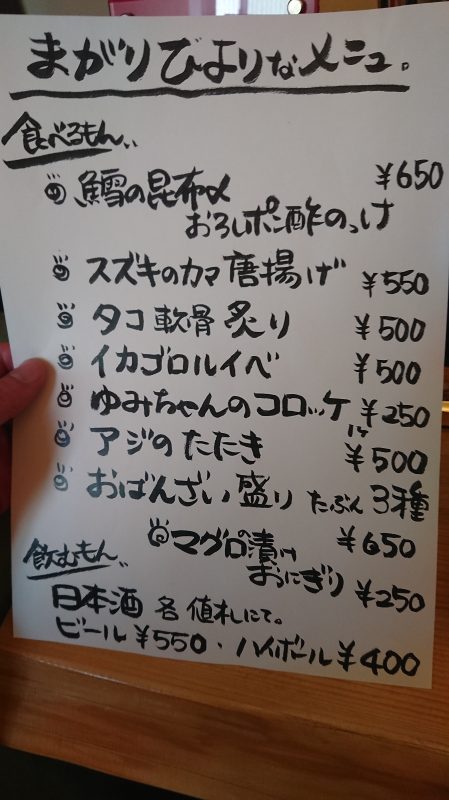 まがりびよりなメニュ。
食べるもん、、
鱈の昆布〆 ¥650
おろしポン酢のっけ
スズキのカマ唐揚げ ¥550
タコ軟骨炙り ¥500
イカゴロルイベ ¥500
ゆみちゃんのコロッケ ¥250
アジのたたき ¥500
おばんざい盛り たぶん3種
¥650
マグロの漬け
おにぎり ¥250
飲むもん、、
日本酒 各値札にて。
ビール ¥550・ハイボール ¥400